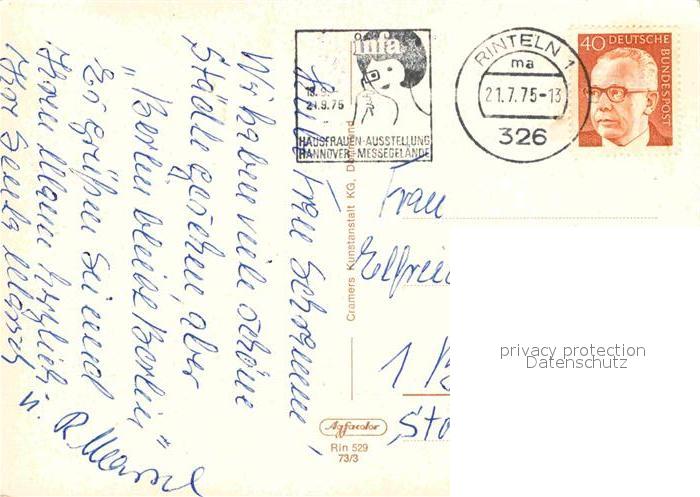 infa
13.9.-
21.9.75
HAUSFRAUEN-AUSSTELLUNG
HANNOVER-MESSEGELÄNDE
RINTELN 1
ma
21.7.75-13
326
40 DEUTSCHE
BUNDESPOST
Liebe Frau
Wir haben viele schöne
Städte gesehen, aber
"Berlin bleibt Berlin"
Es grüßen Sie und
Ihren Mann herzlich
Ihre
u. R.
Cramers Kunstanstalt KG, Dortmund
Frau
Elfried
1 B
Sto
Agfacolor
Rin 529
73/3
privacy protection
Datenschutz